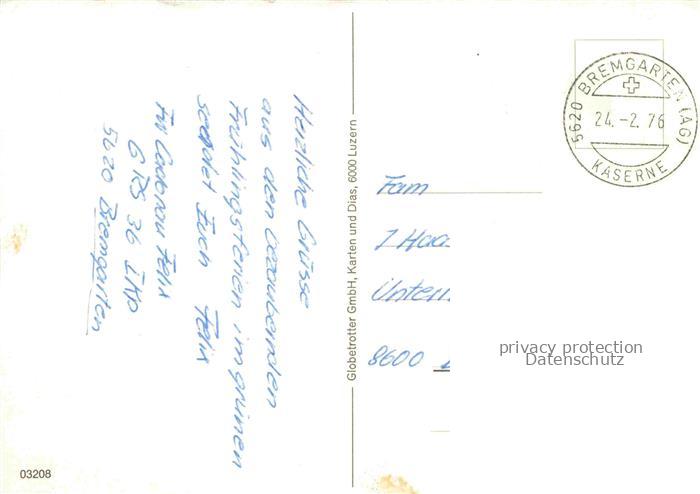 Herzliche Grüsse
aus den bezaubernden
Frühlingsferien im grünen
sendet Euch Felix
Felix
G RS 36 I Kp
5620 Bremgarten
03208
Globetrotter GmbH, Karten und Dias, 6000 Luzern
5620 BREMGARTEN (AG)
24.-2.76
KASERNE
Fam
J Haa
Unter
8600
privacy protection
Datenschutz